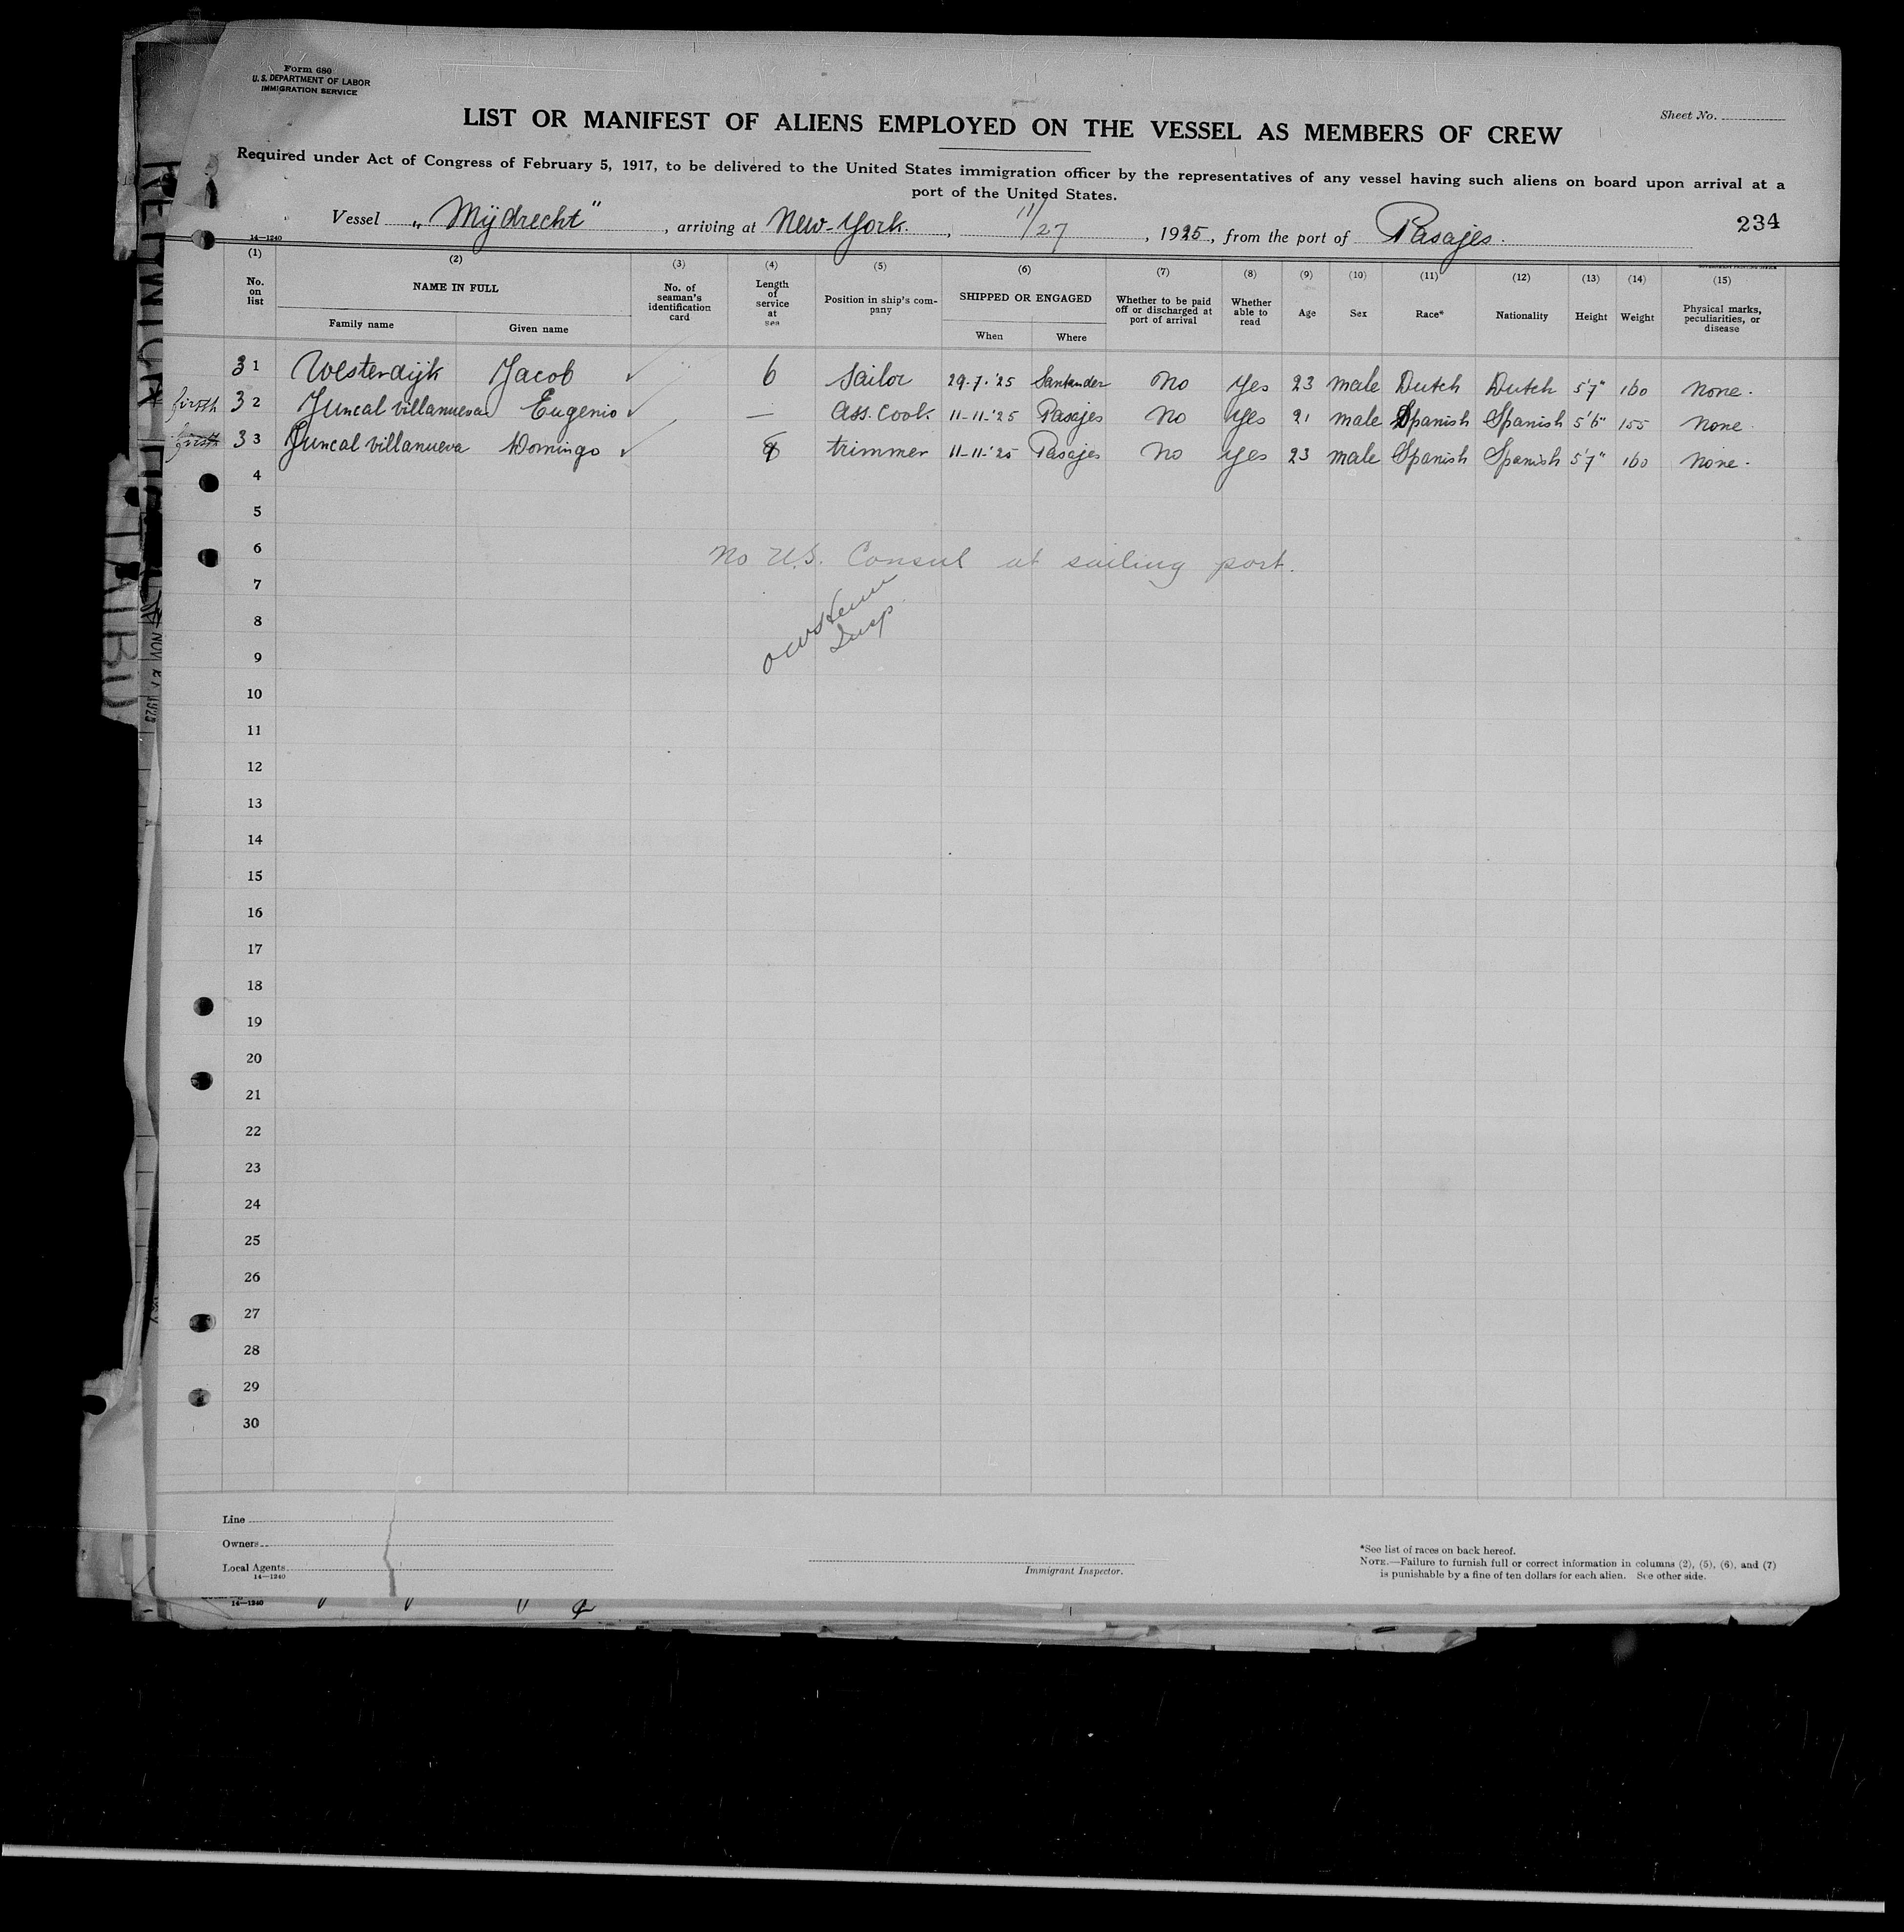 Form 680
U. S. DEPARTMENT OF LABOR
IMMIGRATION SERVICE
Sheet No.
LIST OR MANIFEST OF ALIENS EMPLOYED ON THE VESSEL AS MEMBERS OF CREW
Required under Act of Congress of February 5, 1917, to be delivered to the United States immigration officer by the representatives of any vessel having such aliens on board upon arrival at a
port of the United States.
Vessel „ Mÿdrecht" , arriving at New-York. , 11/27 , 1925, from the port of Pasajes. 234
14—1240
(1) (2) (3) (4) (5) (6) (7) (8) (9) (10) (11) (12) (13) (14) (15)
No. on list NAME IN FULL Family name Given name No. of seaman's identification card Length of service at sea Position in ship's company SHIPPED OR ENGAGED When Where Whether to be paid off or discharged at port of arrival Whether able to read Age Sex Race* Nationality Height Weight Physical marks, peculiarities, or disease
31 Westerdijk Jacob ✓ 6 Sailor 29-7-'25 Santander No Yes 23 male Dutch Dutch 5'7" 160 None.
firsth 32 Juncal villanueva Eugenio ✓ — Ass. Cook. 11-11-'25 Pasajes No Yes 21 male Spanish Spanish 5'6" 155 None.
firsth 33 Juncal villanueva Domingo ✓ trimmer 11-11-'25 Pasajes No Yes 23 male Spanish Spanish 5'7" 160 None.
4
5
6
No U.S. Consul at sailing port.
7
8
Insp.
9
10
11
12
13
14
15
16
17
18
19
20
21
22
23
24
25
26
27
28
29
30
Line
Owners
Local Agents
14—1240
Immigrant Inspector.
*See list of races on back hereof.
NOTE.—Failure to furnish full or correct information in columns (2), (5), (6), and (7)
is punishable by a fine of ten dollars for each alien. See other side.
14—1240